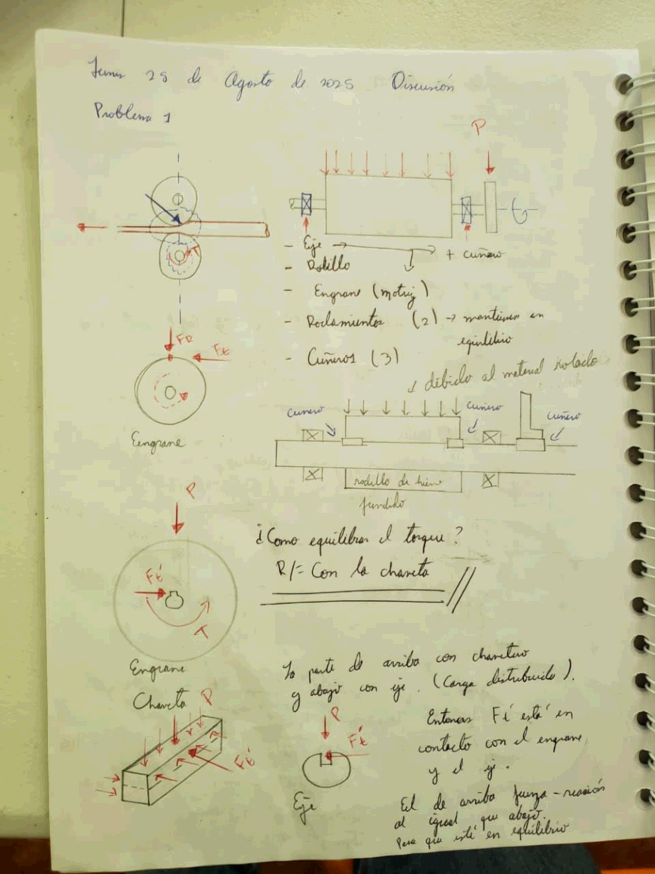 Lunes 25 de Agosto de 2025 Discusión
Problema 1
P
T
- Eje + cuñero
- Rodillo
- Engrane (motriz)
- Rodamientos (2) → mantienen en
equilibrio
- Cuñeros (3)
Fr
Ft
Engrane
debido al material rolado
cuñero cuñero cuñero
rodillo de hierro
fundido
¿Como equilibrar el torque?
R/= Con la chaveta
P
Ft'
T
Engrane
La parte de arriba con chavetero
y abajo con eje. (Carga distribuida).
Chaveta
P
Ft'
P
Ft'
Eje
Entonces Ft' está en
contacto con el engrane
y el eje.
El de arriba fuerza-reacción
al igual que abajo.
Para que esté en equilibrio